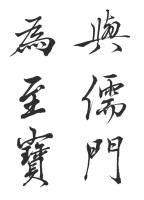 與儒門
為至寶